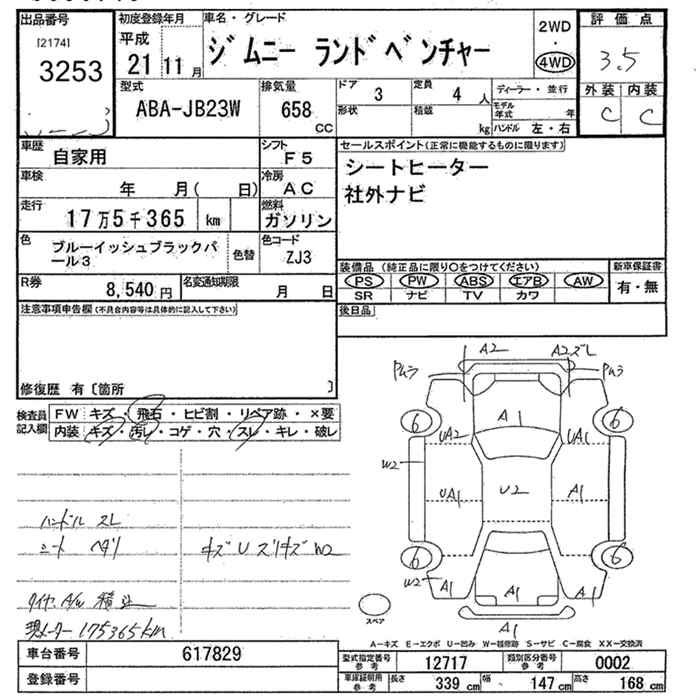 出品番号
[2174]
3253
初度登録年月
平成
21 11 月
車名・グレード
ジムニー ランドベンチャー
2WD
・
4WD
評価点
3.5
外装 内装
C C
型式
ABA-JB23W
排気量
658
CC
ドア 3
定員 4 人
形状
積載
kg
ディーラー・並行
モデル年式 年
ハンドル 左・右
車歴
自家用
シフト
F5
セールスポイント(正常に機能するものに限ります)
シートヒーター
社外ナビ
車検
年 月( 日)
冷房
AC
走行
17万5千365 km
燃料
ガソリン
色
ブルーイッシュブラックパ
ール3
色替
色コード
ZJ3
装備品 (純正品に限り〇をつけてください)
PS PW ABS エアB AW
SR ナビ TV カワ
新車保証書
有・無
R券
8,540 円
名変通知期限
月 日
後日品
注意事項申告欄(不具合内容等は具体的に記入して下さい)
修復歴 有〔箇所 〕
検査員
記入欄
FW キズ・飛石・ヒビ割・リペア跡・×要
内装 キズ・汚レ・コゲ・穴・スレ・キレ・破レ
ハンドル スレ
シート ヘタリ
キズU ズリキズ W2
タイヤ、A/W 積込
現メーター 175365km
A2
A2ズレ
Pムラ
Pムラ
A1
6
6
UA2
UA1
W2
UA1
U2
A1
6
6
W2
A1
A1
A1
A1
スペア
A-キズ E-エクボ U-凹み W-補修跡 S-サビ C-腐食 XX-交換済
車台番号
617829
登録番号
型式指定番号
参考
12717
類別区分番号
参考
0002
車庫証明用
参考
長さ 339 cm 幅 147 cm 高さ 168 cm